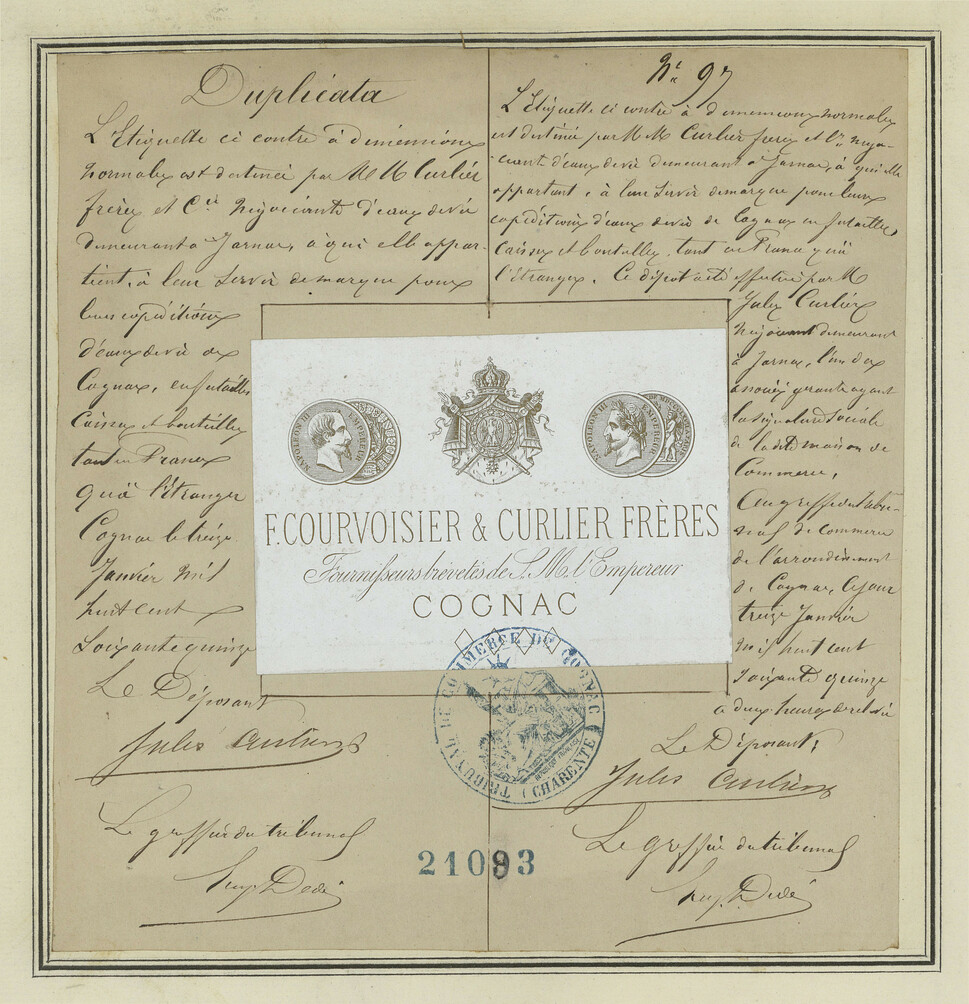 Duplicata
L'Etiquette ci contre à dimensions
normales est destinée par MM Curlier
frères et Cie Négociants d'eaux de vie
demeurant à Jarnac, à qui elle appar-
tient, à leur servir de marque pour
leurs expéditions
d'eaux de vie de
Cognac, en futailles
Caisses et bouteilles
tant en France
qu'à l'étranger
Cognac le treize
Janvier mil
huit cent
soixante quinze
Le Déposant
Jules Curlier
Le greffier du tribunal
No 97
L'Etiquette ci contre à dimensions normales
est destinée par MM Curlier frères et Cie négo-
ciants d'eaux de vie demeurant à Jarnac, à qui elle
appartient, à leur servir de marque pour leurs
expéditions d'eaux de vie de Cognac en futailles,
caisses et bouteilles, tant en France qu'à
l'étranger. Ce dépôt a été effectué par M
Jules Curlier
Négociant demeurant
à Jarnac, l'un des
associés gérants ayant
la signature sociale
de la dite maison de
Commerce,
Au greffe du tribu-
nal de commerce
de l'arrondissement
de Cognac, ce jour
treize Janvier
mil huit cent
soixante quinze
à deux heures de relevée
Le Déposant,
Jules Curlier
Le greffier du tribunal
NAPOLEON III EMPEREUR
NAPOLEON III EMPEREUR
F. COURVOISIER & CURLIER FRÈRES
Fournisseurs brevetés de S. M. l'Empereur
COGNAC
TRIBUNAL DE COMMERCE DE COGNAC
(CHARENTE)
21093